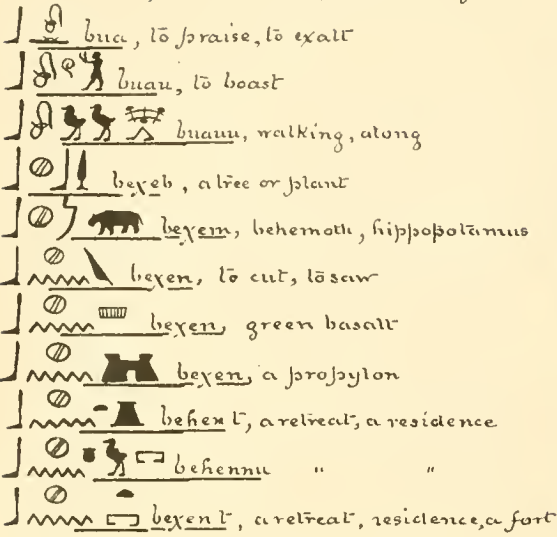 bua, to praise, to exalt
buau, to boast
buauu, walking, along
beχeb, a tree or plant
beχem, behemoth, hippopotamus
beχen, to cut, to saw
beχen, green basalt
beχen, a propylon
behen t, a retreat, a residence
behennu " "
beχen t, a retreat, residence, a fort